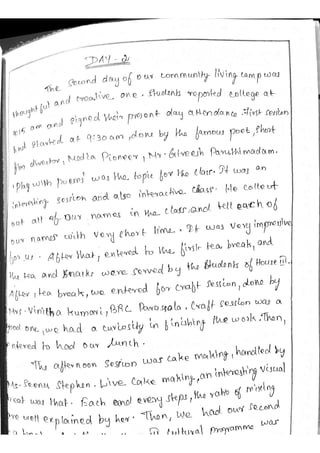 DAY - 2
The second day of our community living camp was
thoughtful and creative one. Students reported college at
8:15 am and signed their present day attendance. First session
had started at 9:30 am, done by the famous poet, short
film director, Media Pioneer, Mr. Gireesh Paruthimadam.
'play with poems' was the topic for the class. It was an
interesting session and also interactive class. He collect
out all of our names in the class and tell each of
our names with very short time. It was very impressive
for us. After that, entered to the first tea break, and
the tea and snacks were served by the students of House III.
After, tea break, we entered for craft session, done by
Mrs. Vinitha Kumari, BRC Parassala. Craft session was a
good one, we had a curiosity in finishing the work. Then,
entered to had our lunch.
The afternoon session was cake making, handled by
Ms. Seenu Stephen. Live cake making, an interesting visual
treat was that. Each and every steps, the ratio of mixing
are well explained by her. Then, we had our second
III cultural programme was